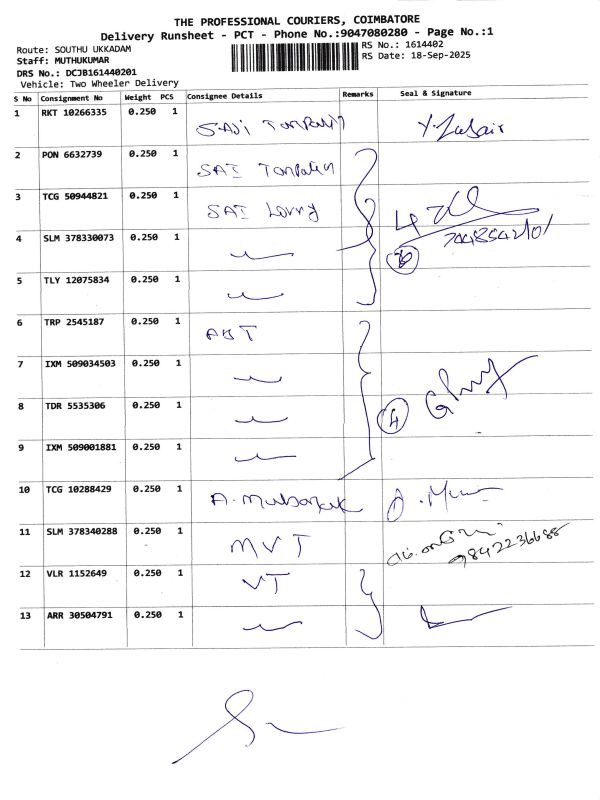 THE PROFESSIONAL COURIERS, COIMBATORE
Delivery Runsheet - PCT - Phone No.:9047080280 - Page No.:1
Route: SOUTHU UKKADAM
RS No.: 1614402
Staff: MUTHUKUMAR
RS Date: 18-Sep-2025
DRS No.: DCJB161440201
Vehicle: Two Wheeler Delivery
S No Consignment No Weight PCS Consignee Details Remarks Seal & Signature
1 RKT 10266335 0.250 1
2 PON 6632739 0.250 1 SAI
3 TCG 50944821 0.250 1 SAI Lorry
4 SLM 378330073 0.250 1
5 TLY 12075834 0.250 1
6 TRP 2545187 0.250 1 ABT
7 IXM 509034503 0.250 1
8 TDR 5535306 0.250 1 4
9 IXM 509001881 0.250 1
10 TCG 10288429 0.250 1 A. Mubarak
11 SLM 378340288 0.250 1 MVT 9842236688
12 VLR 1152649 0.250 1 VT
13 ARR 30504791 0.250 1